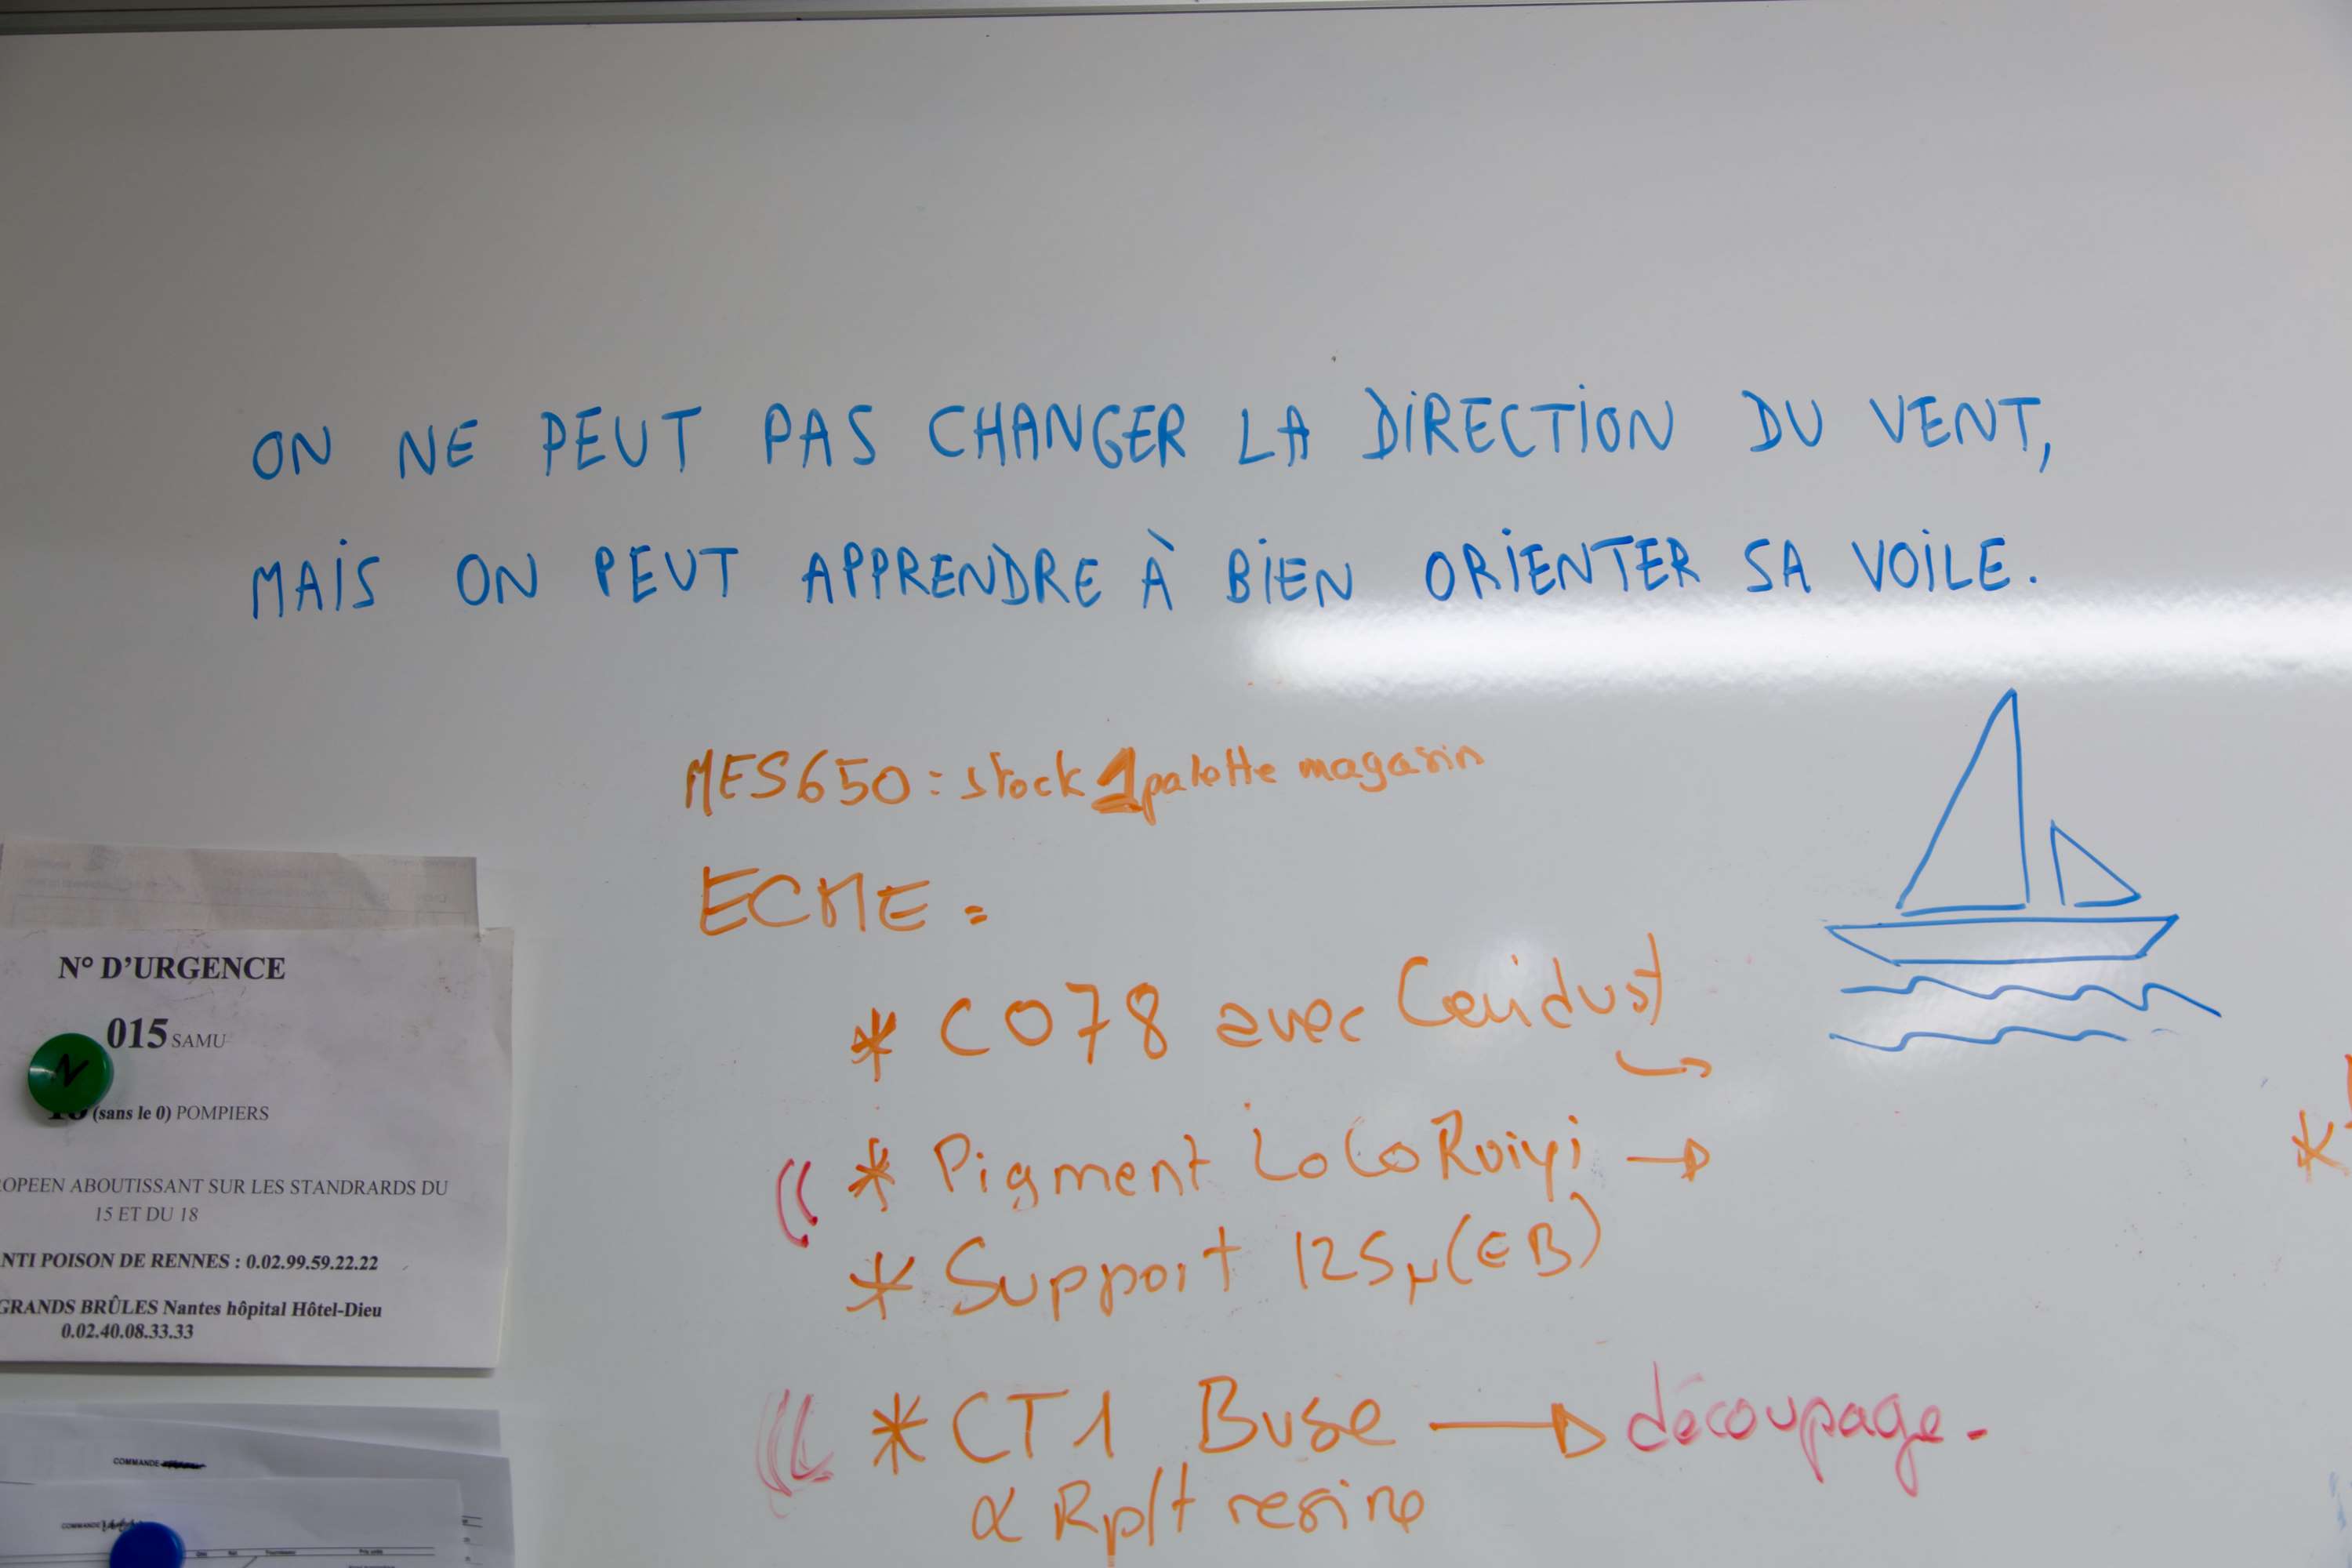 ON NE PEUT PAS CHANGER LA DIRECTION DU VENT,
MAIS ON PEUT APPRENDRE À BIEN ORIENTER SA VOILE.
MES650 : stock 1 palette magasin
ECME =
* C078 avec
* Pigment
* Support 125µ (EB)
* CT1 Buse → découpage.
resine
N° D'URGENCE
015 SAMU
(sans le 0) POMPIERS
OPEEN ABOUTISSANT SUR LES STANDRARDS DU
15 ET DU 18
NTI POISON DE RENNES : 0.02.99.59.22.22
GRANDS BRÛLES Nantes hôpital Hôtel-Dieu
0.02.40.08.33.33
COMMANDE
COMMANDE